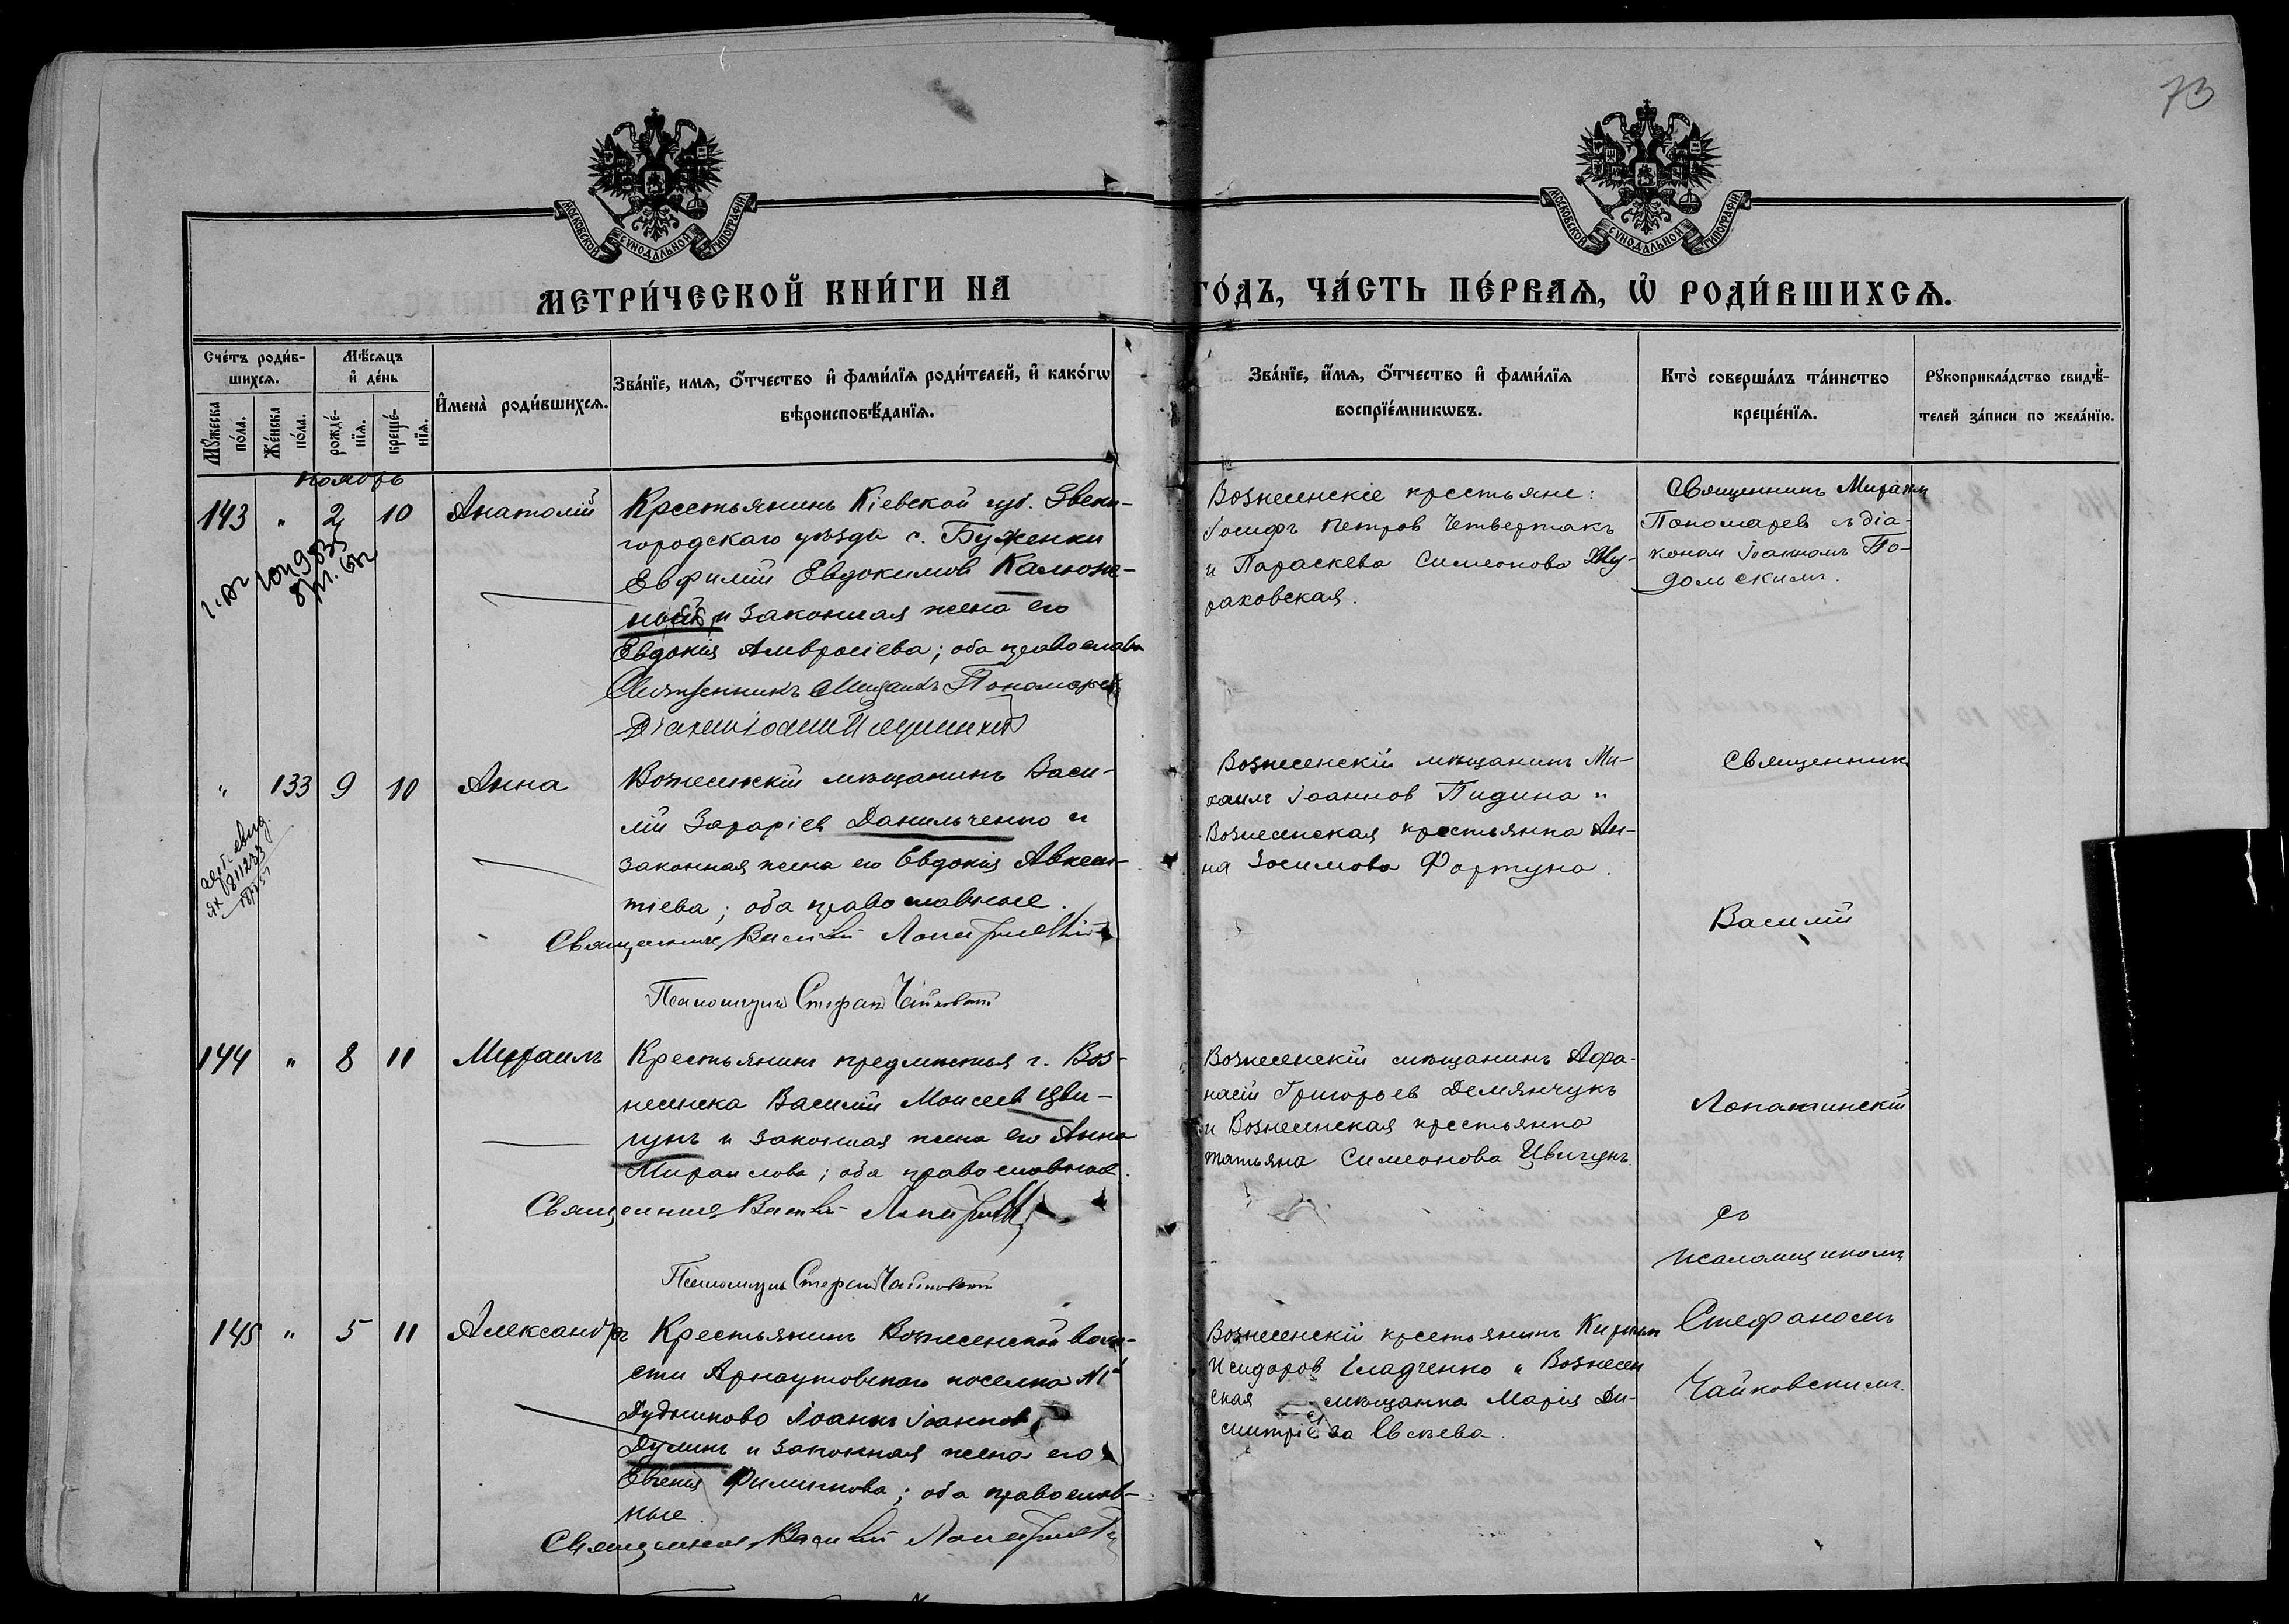 73
МОСКОВСКОЙ СѴНОДАЛЬНОЙ ТИПОГРАФІИ
МОСКОВСКОЙ СѴНОДАЛЬНОЙ ТИПОГРАФІИ
МЕТРИ́ЧЕСКОЙ КНИ́ГИ НА ГО́ДЪ, ЧА́СТЬ ПЕ́РВАѦ, Ѡ҆ РОДИ́ВШИХСѦ.
Сче́тъ роди́в-
шихсѧ.
Мꙋ́жеска
по́ла.
Же́нска
по́ла.
Мѣ́сѧцъ
и҆ де́нь
рожде́-
нїѧ.
креще́-
нїѧ.
И҆мена̀ роди́вшихсѧ.
Зва́нїе, имѧ, ѻ҆́тчество и҆ фами́лїѧ роди́телей, и҆ како́гѡ
вѣроисповѣ́данїѧ.
Зва́нїе, и҆́мѧ, ѻ҆́тчество и҆ фами́лїѧ
воспрїе́мникѡвъ.
Кто̀ соверша́лъ та́инство
креще́нїѧ.
Рꙋкоприкла́дство свидѣ́-
телей за́писи по жела́нїю.
Ноябрь
143 " 2 10 Анатолій
Крестьянинъ Кіевской губ. Звени-
городскаго уѣзда с. Буженки
Евфимій Евдокимов Калюж-
ной и законная жена его
Евдокія Амвросіева; оба православн
Священникъ Михаилъ Пономарев
Діаконъ Іоаннъ
Вознесенскіе крестьяне:
Іосифъ Петров Четвертакъ
и Параскева Симеонова Жу-
раковская.
Священникъ Михаилъ
Пономарев съ діа-
кономъ Іоанномъ По-
дольскимъ.
" 133 9 10 Анна
Вознесенскій мѣщанинъ Васи-
лій Захаріев Данильченко и
законная жена его Евдокія Авксен-
тіева; оба православные.
Священникъ Василій Лопатинскій
Псаломщикъ Стефанъ Чайковскій
Вознесенскій мѣщанинъ Ми-
хаилъ Іоаннов Пидина и
Вознесенская крестьянка Ан-
на Зосимова Фортуна.
Священникъ
Василій
144 " 8 11 Михаилъ
Крестьянинъ предмѣстья г. Воз-
несенска Василій Моисеев Цви-
гунъ и законная жена его Анна
Михаилова; оба православные.
Священникъ Василій Лопатинскій
Псаломщикъ Стефанъ Чайковскій
Вознесенскій мѣщанинъ Афа-
насій Григорьев Демянчукъ
и Вознесенская крестьянка
Татьяна Симеонова Цвигунъ.
Лопатинскій
съ
псаломщикомъ
145 " 5 11 Александръ
Крестьянинъ Вознесенской воло-
сти Арнаутовскаго поселка №
Дудниково Іоаннъ Іоаннов
Дулинъ и законная жена его
Евгенія Филиппова; оба православ-
ные.
Священникъ Василій Лопатинскій
Вознесенскій крестьянинъ Кирилл
Исидоров Гладченко и Вознесен
ская мѣщанка Марія Ди-
митріева Евсѣева.
Стефаномъ
Чайковскимъ.